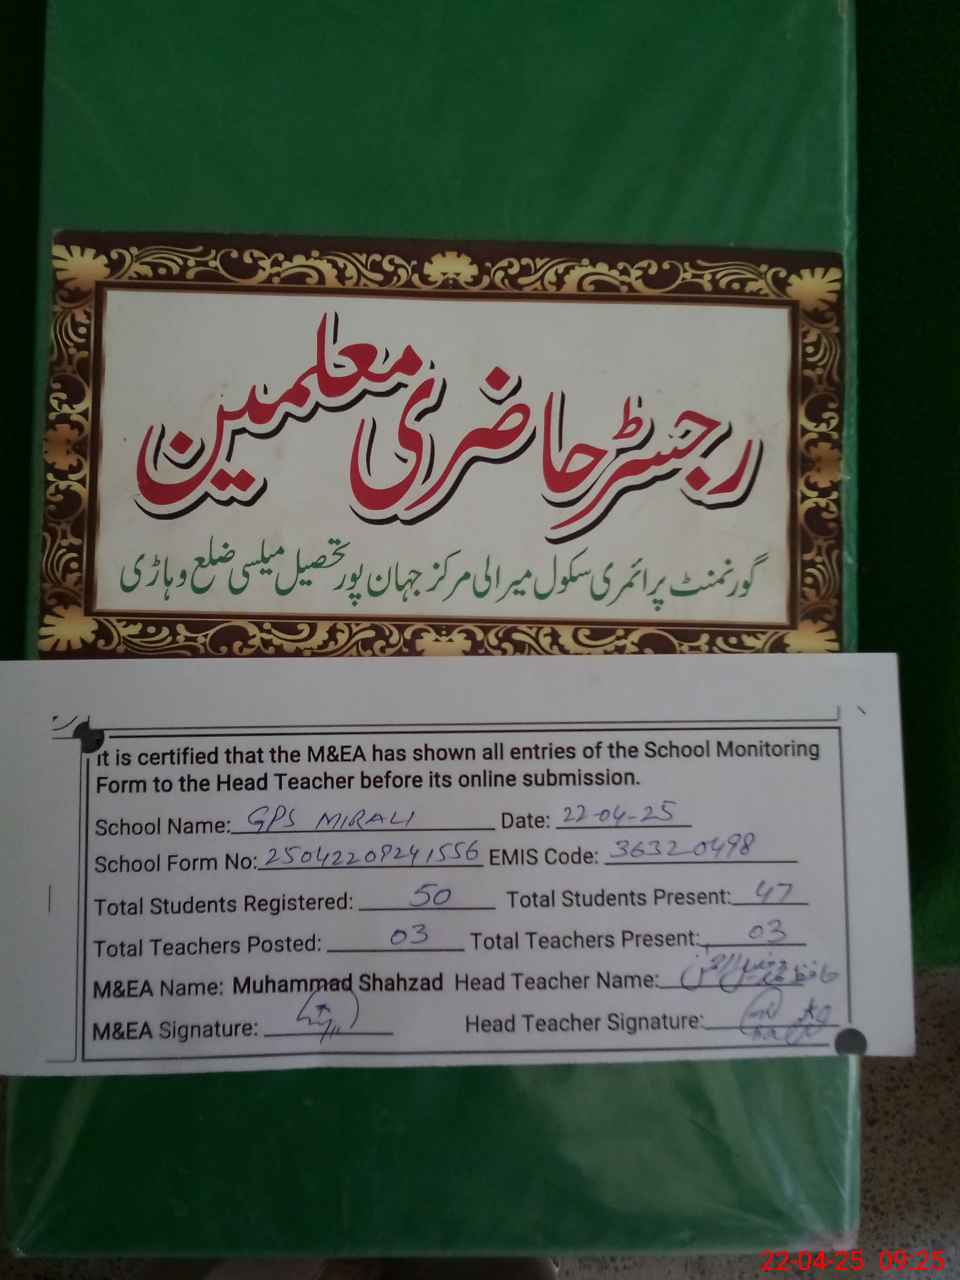 رجسٹر حاضری معلمین
گورنمنٹ پرائمری سکول میرالی مرکز جہان پور تحصیل میلسی ضلع وہاڑی
It is certified that the M&EA has shown all entries of the School Monitoring
Form to the Head Teacher before its online submission.
School Name: GPS MIRALI Date: 22-04-25
School Form No: 25042209241556 EMIS Code: 36320498
Total Students Registered: 50 Total Students Present: 47
Total Teachers Posted: 03 Total Teachers Present: 03
M&EA Name: Muhammad Shahzad Head Teacher Name: حافظ
M&EA Signature: Head Teacher Signature:
22-04-25 09:25